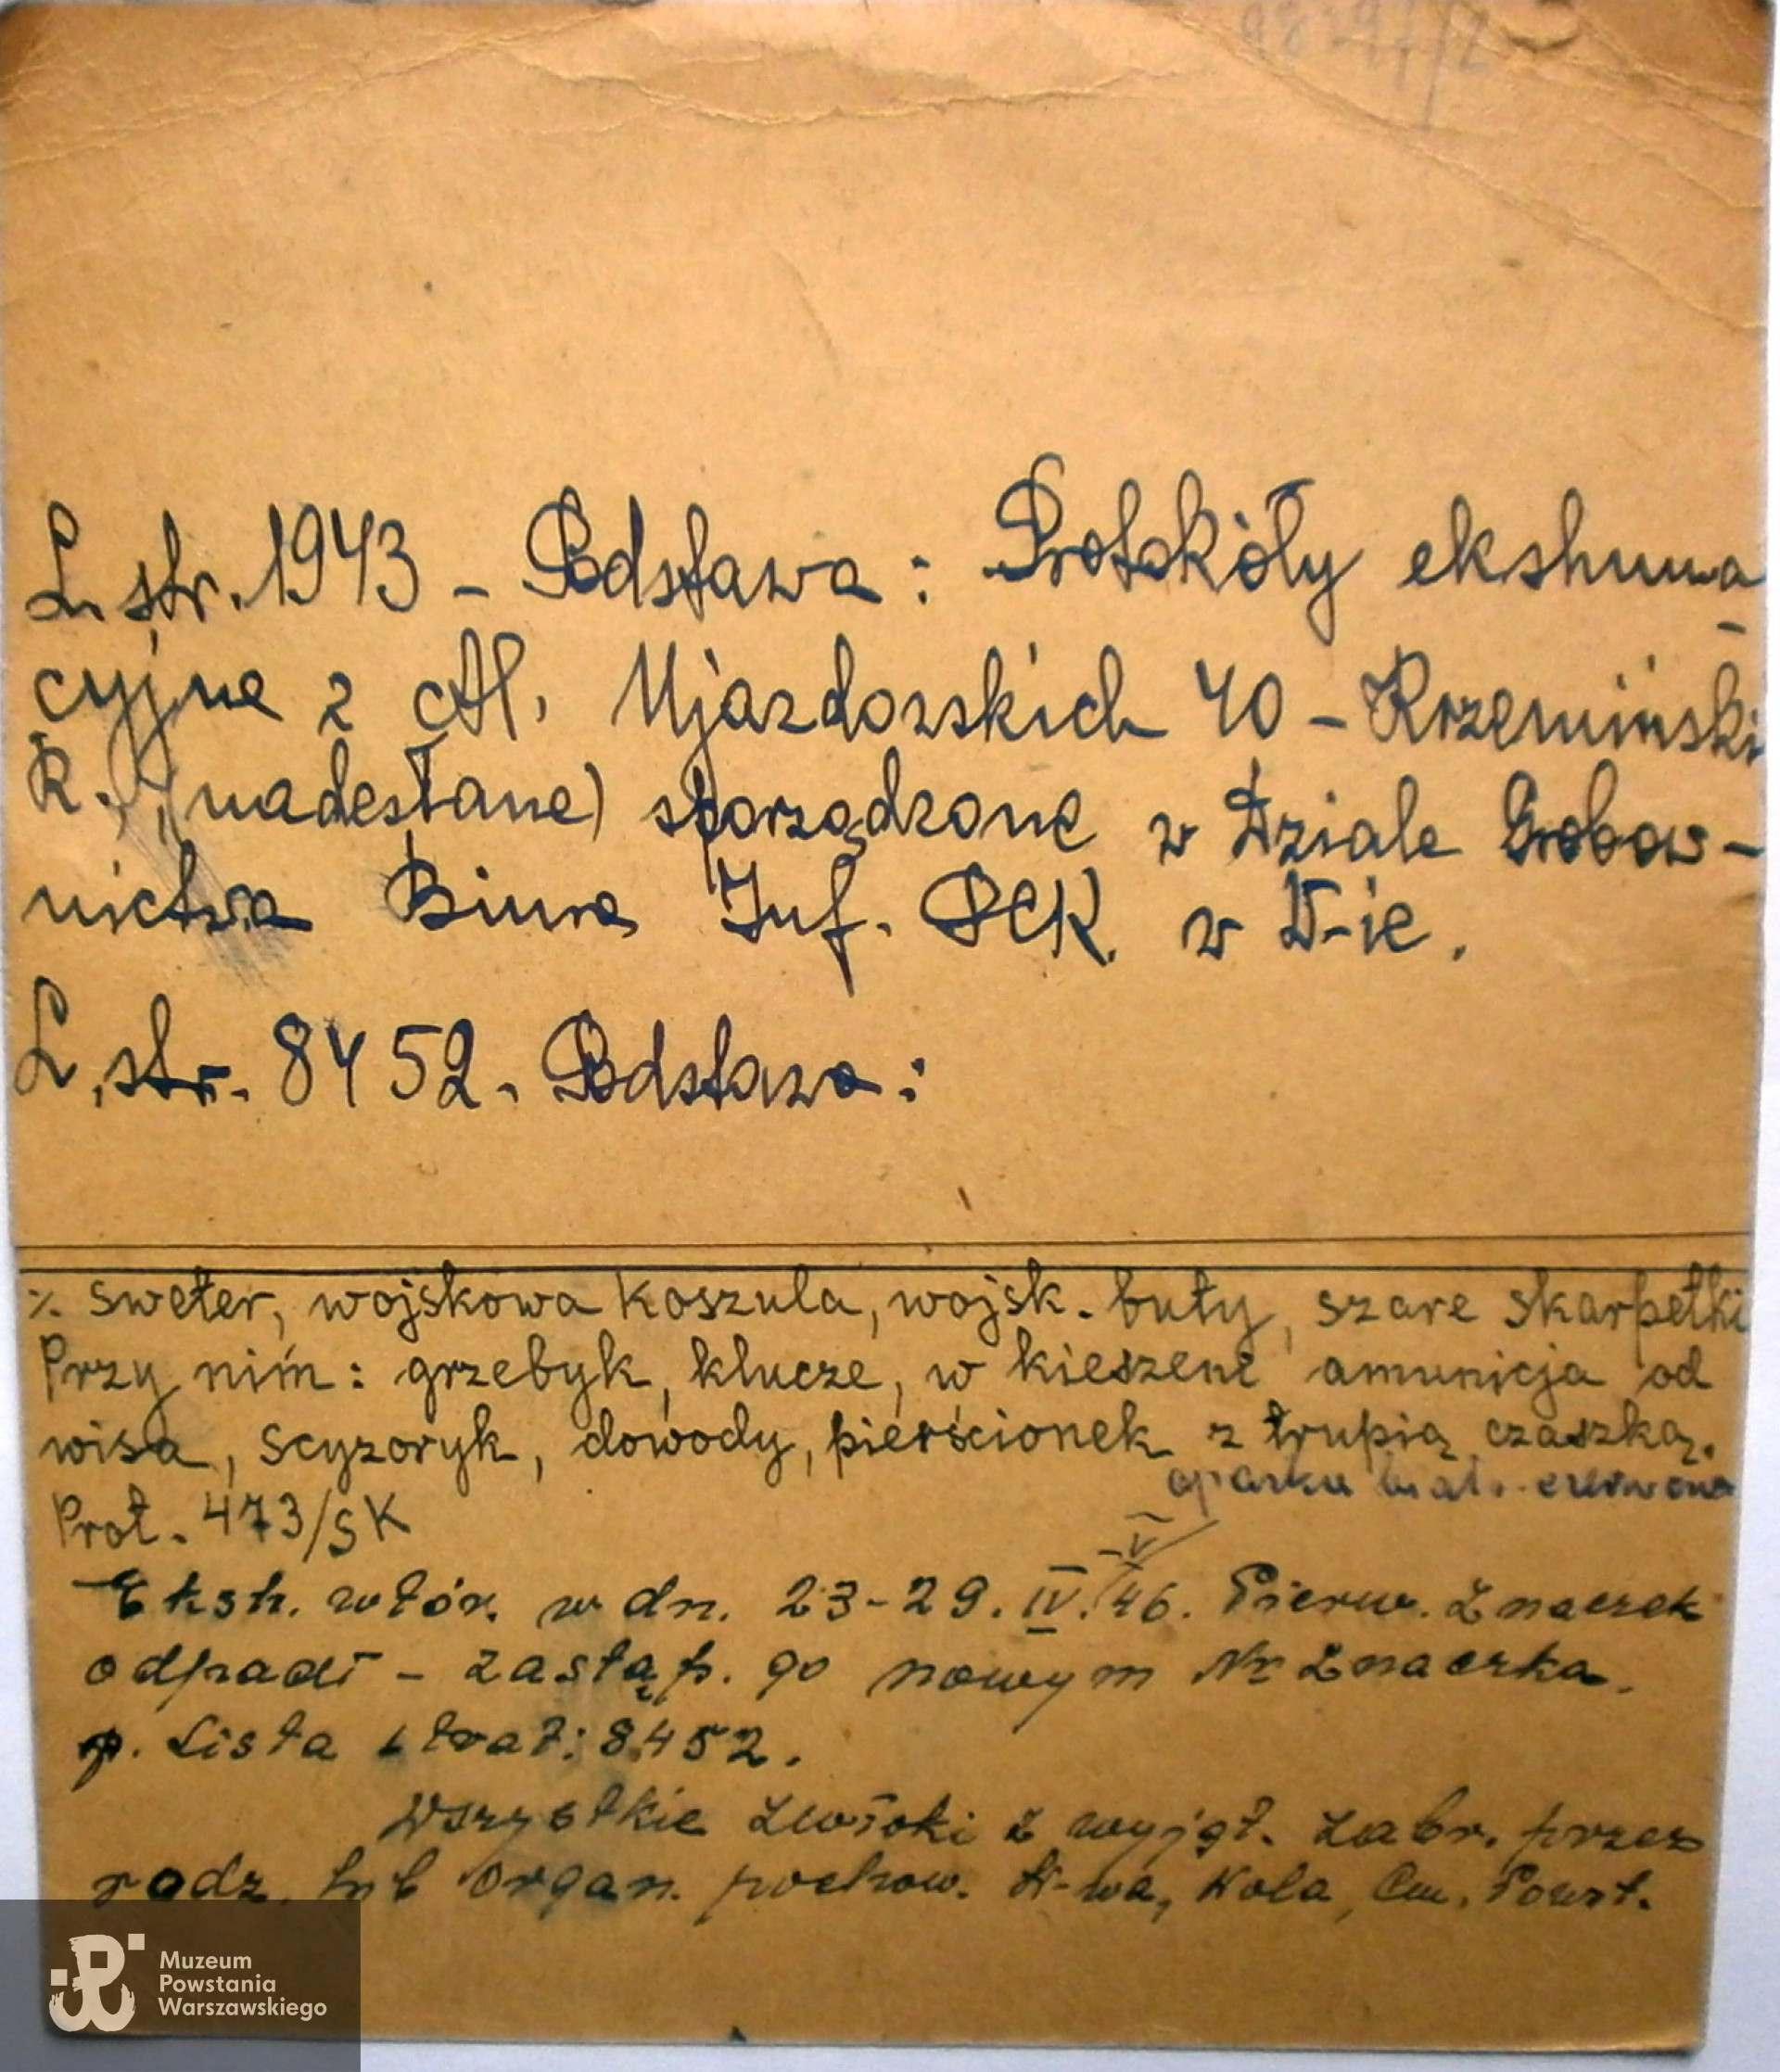 L. str. 1943 – Podstawa: Protokóły ekshuma-
cyjne z Al. Ujazdowskich 40 – Krzemiński
R. (nadesłane) sporządzone w Dziale Grobow-
nictwa Biura Inf. PCK. w W-ie.
L. str. 8452. Podstawa:
·/. sweter, wojskowa koszula, wojsk. buty, szare skarpetki
Przy nim: grzebyk, klucze, w kieszeni amunicja od
wisa, scyzoryk, dowody, pierścionek z trupią czaszką.
opaska biał. czerwona
Prot. 473/SK
V
Eksh. wtór. w dn. 23-29.IV.46. Pierw. znaczek
odpadł – zastąp. go nowym Nr znaczka.
p. Lista strat: 8452.
Wszystkie zwłoki z wyjąt. zabr. przez
rodz. lub organ. pochow. W-wa, Wola, Cm. Powst.
Muzeum
Powstania
Warszawskiego